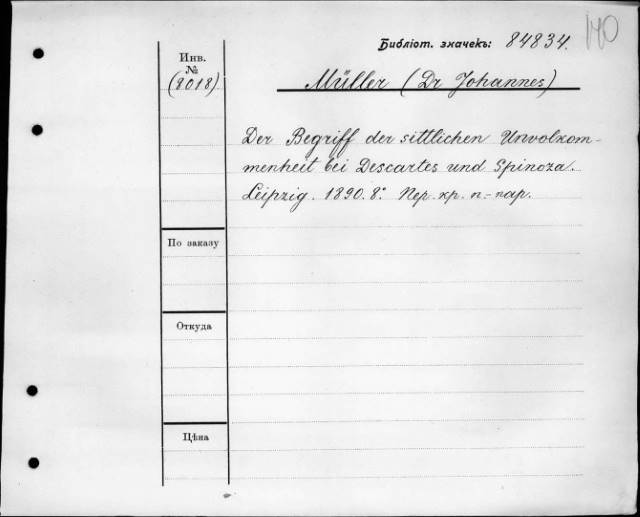 Библіот. значекъ: 84834.
140
Инв.
№
(8018)
Müller (Dr Johannes)
Der Begriff der sittlichen Unvolkom-
menheit bei Descartes und Spinoza.
Leipzig. 1890. 8.° Пер. кр. п.-пар.
По заказу
Откуда
Цѣна